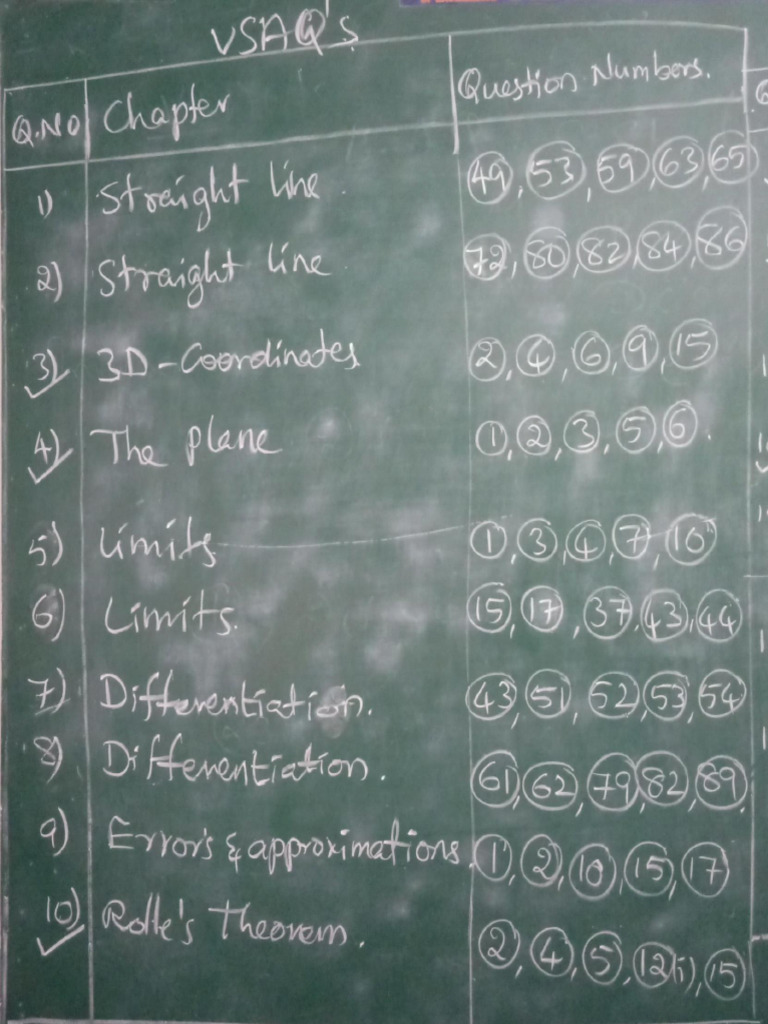 VSAQ's
Q.NO Chapter Question Numbers.
1) Straight line. 49, 53, 59, 63, 65
2) Straight line 72, 80, 82, 84, 86
3) 3D-Coordinates 2, 4, 6, 9, 15
4) The plane 1, 2, 3, 5, 6.
5) Limits 1, 3, 4, 7, 10
6) Limits. 15, 17, 37, 43, 44
7) Differentiation. 43, 51, 52, 53, 54
8) Differentiation. 61, 62, 79, 82, 89
9) Errors & approximations. 1, 2, 10, 15, 17
10) Rolle's Theorem. 2, 4, 5, 12(i), 15